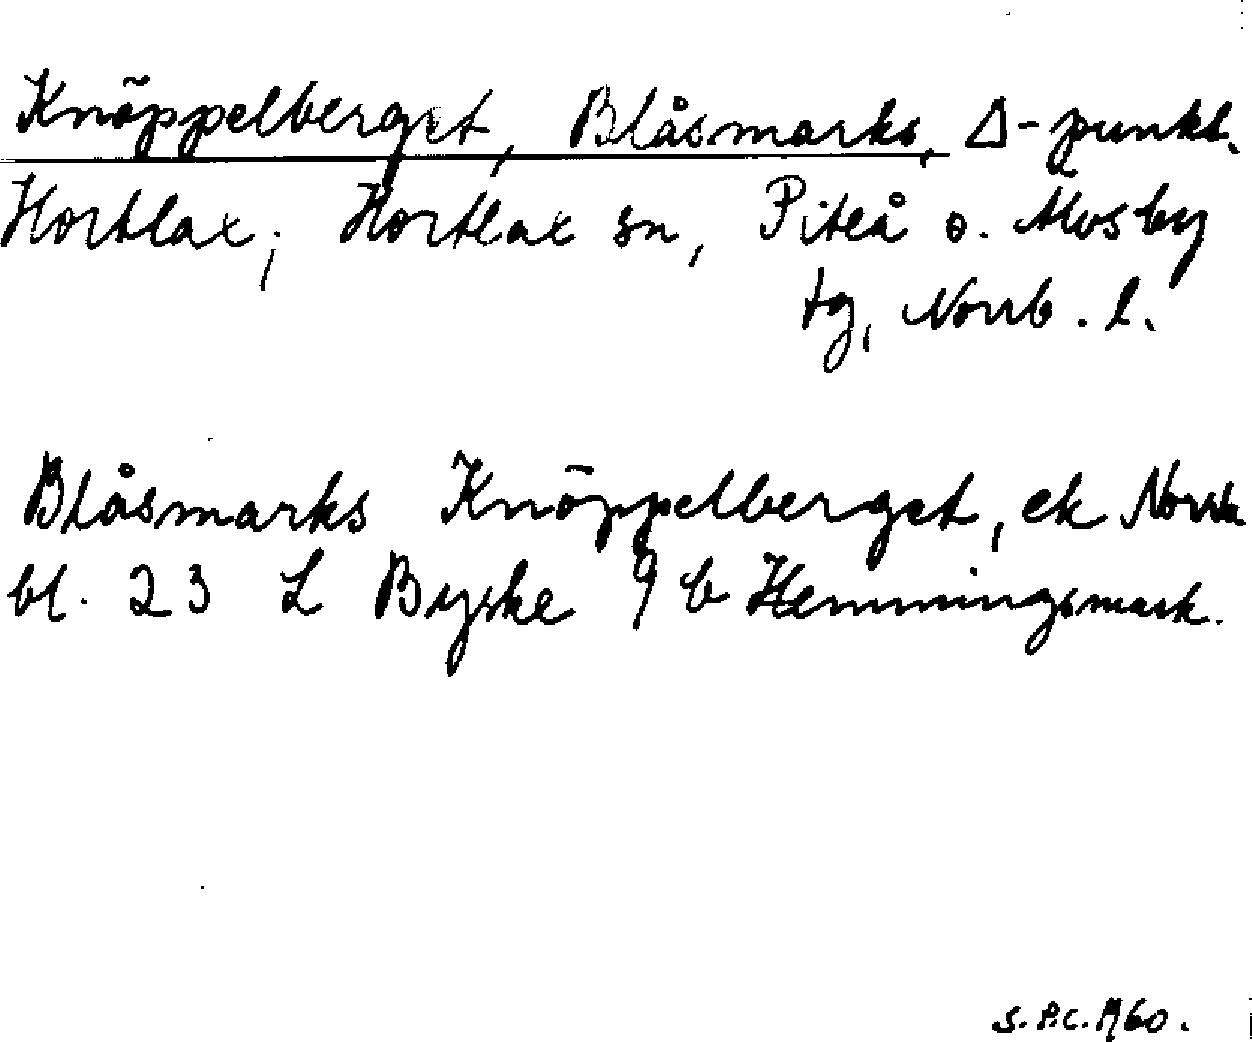 Knöppelberget, Blåsmarks, Δ-punkt.
Hortlax; Hortlax sn, Piteå o. Älvsby
tg, Norrb. l.
Blåsmarks Knöppelberget, ek
bl. 23 L Byske 9 b Hemmingsmark.
S. P.C. 1960.